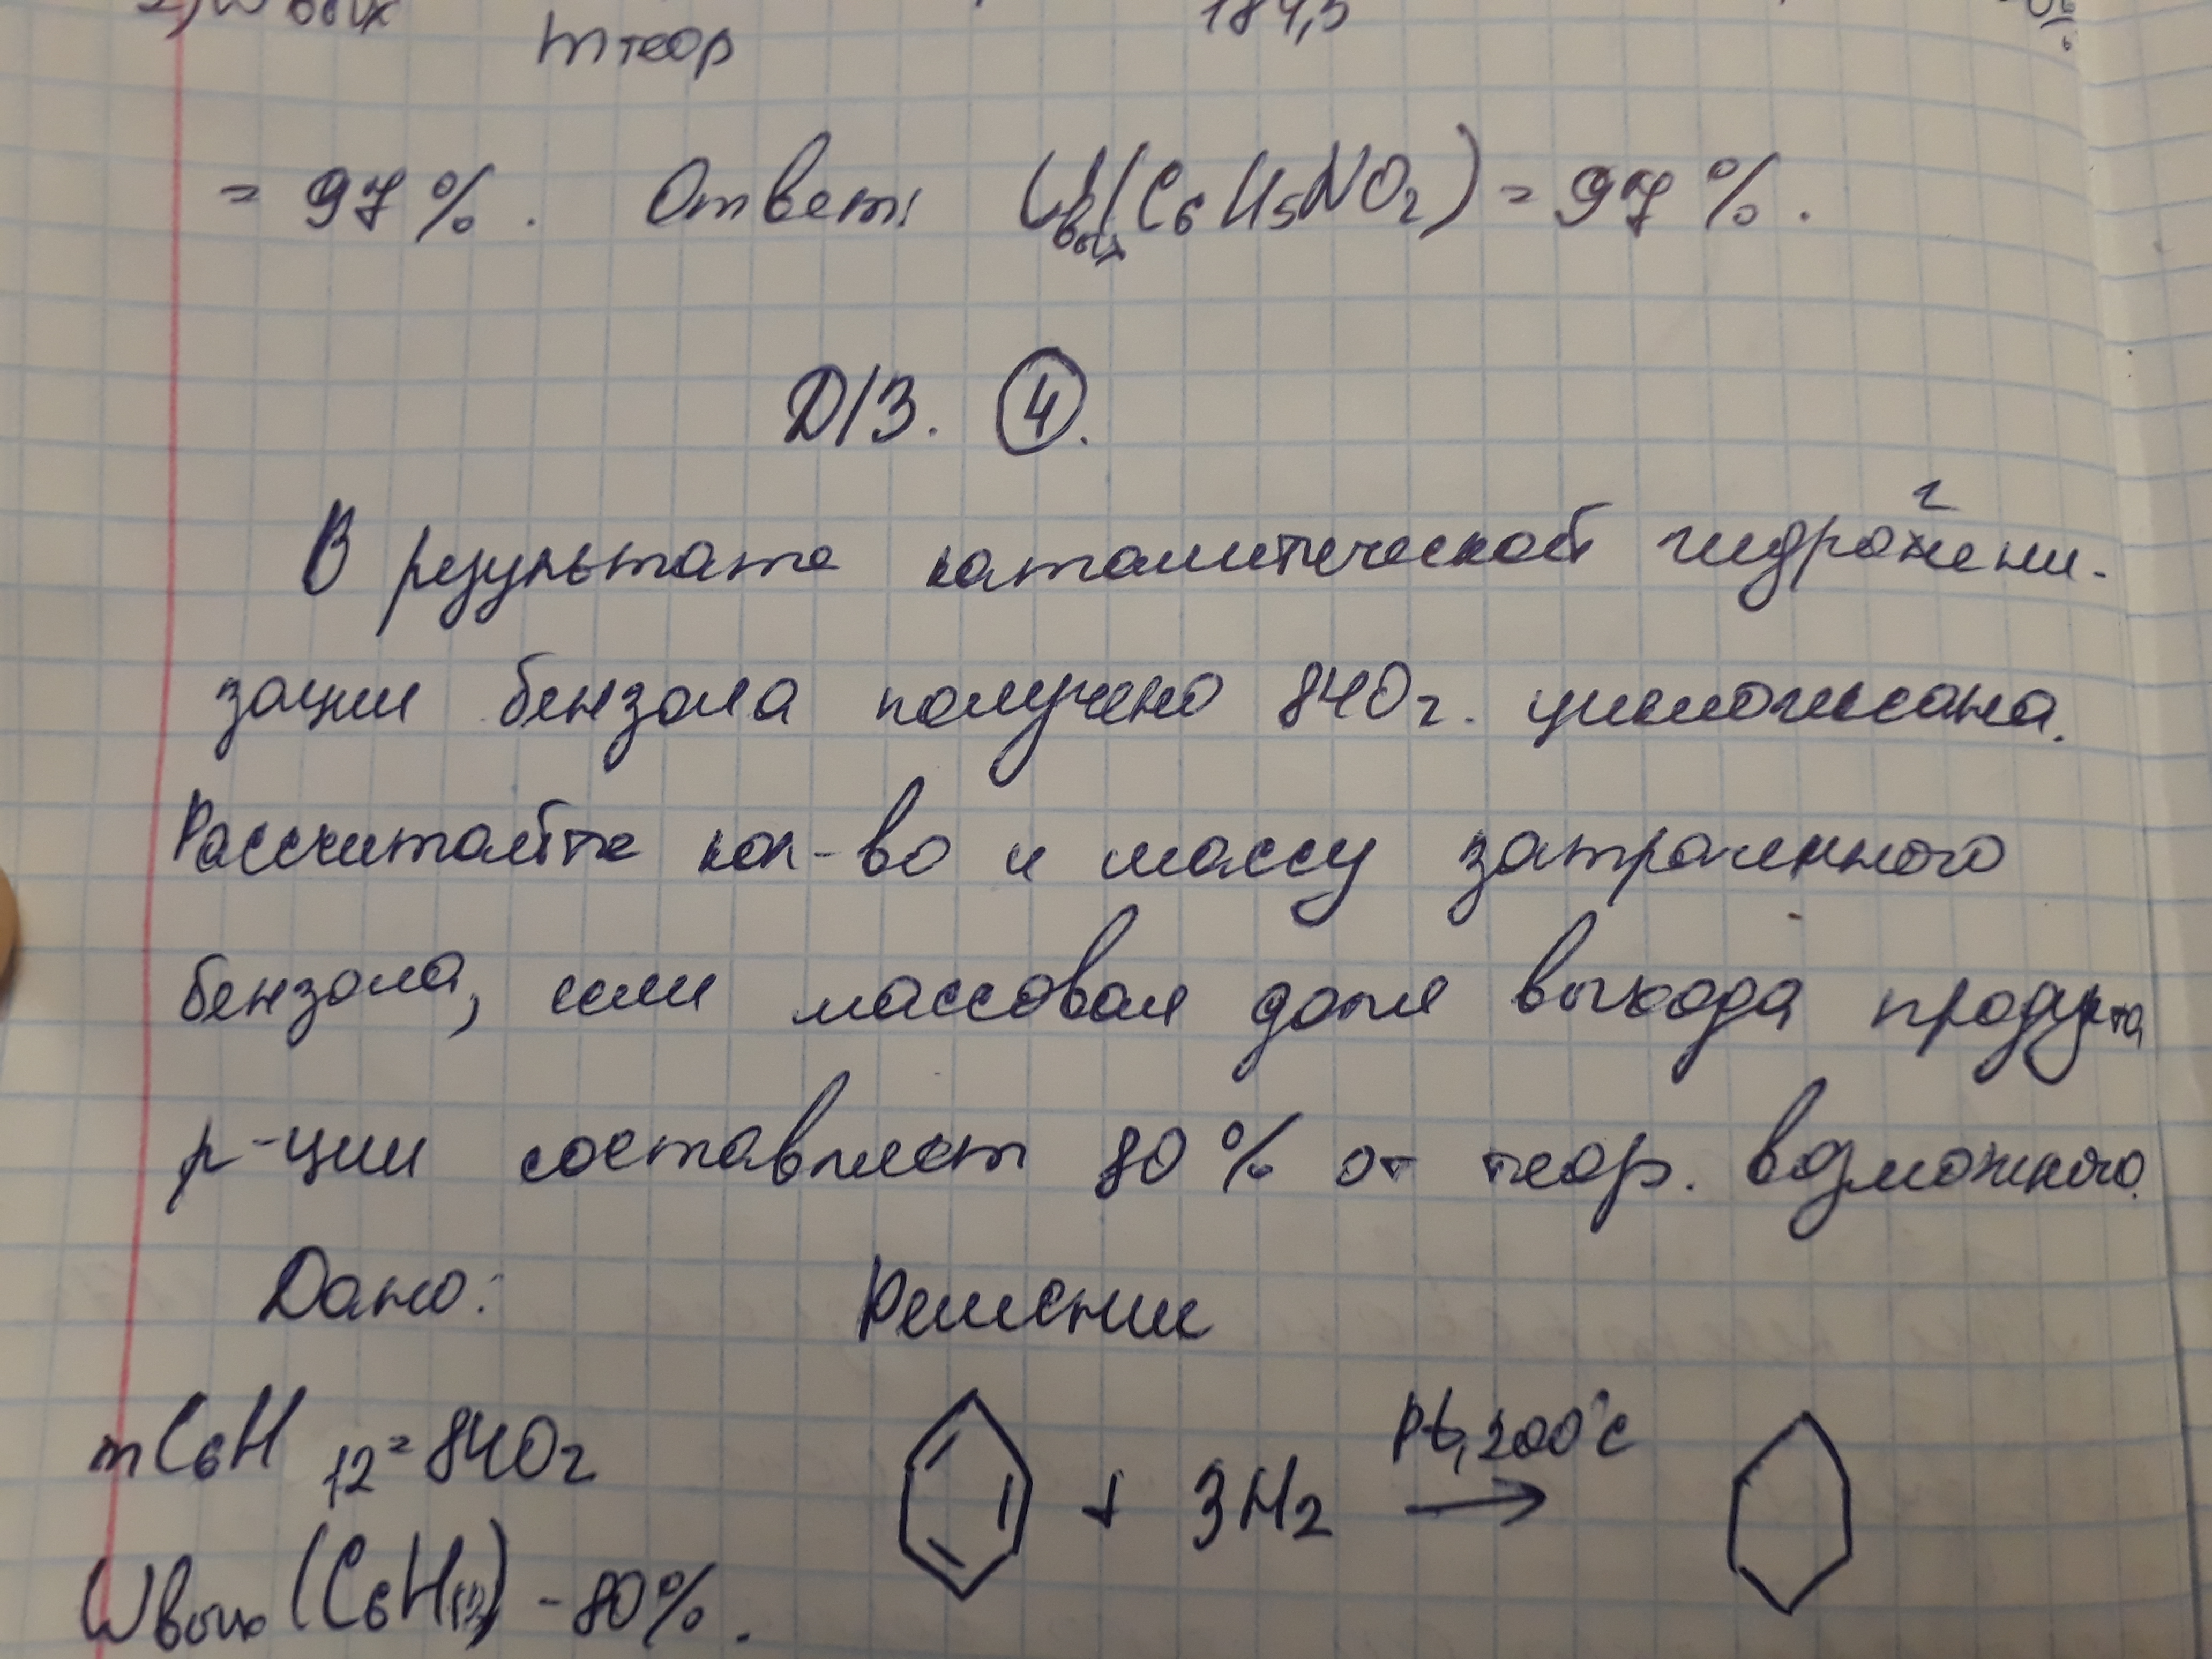 2) W вых
m теор 184,5
= 97 %. Ответ: Wвых(C6H5NO2) = 97 %.
Д/З. 4.
г
В результате каталитической гидрожени-
зации бензола получено 840 г. циклогексана.
Рассчитайте кол-во и массу затраченного
бензола, если массовая доля выхода продукта
р-ции составляет 80 % от теор. возможного.
Дано: Решение
mC6H12 = 840г
+ 3H2 Pt, 200°C →
Wвых (C6H12) - 80%.